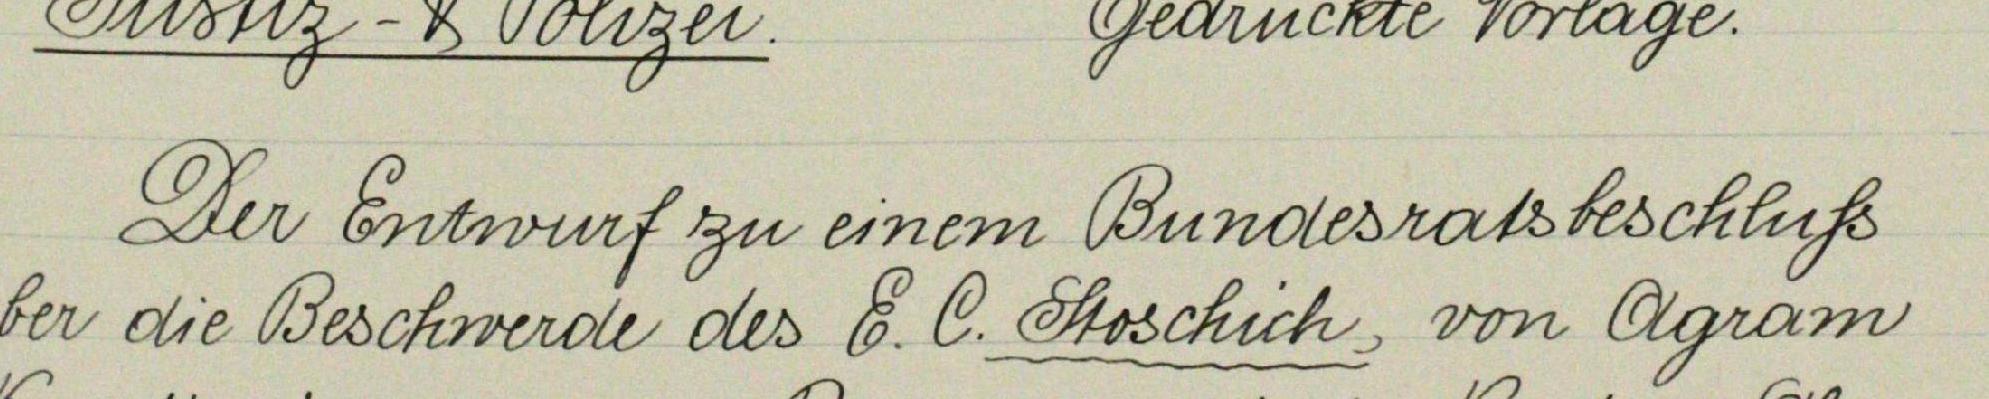 Justiz- & Polizei. Gedruckte Vorlage.
Der Entwurf zu einem Bundesratsbeschluß
ber die Beschwerde des E. C. Stoschich, von Agram